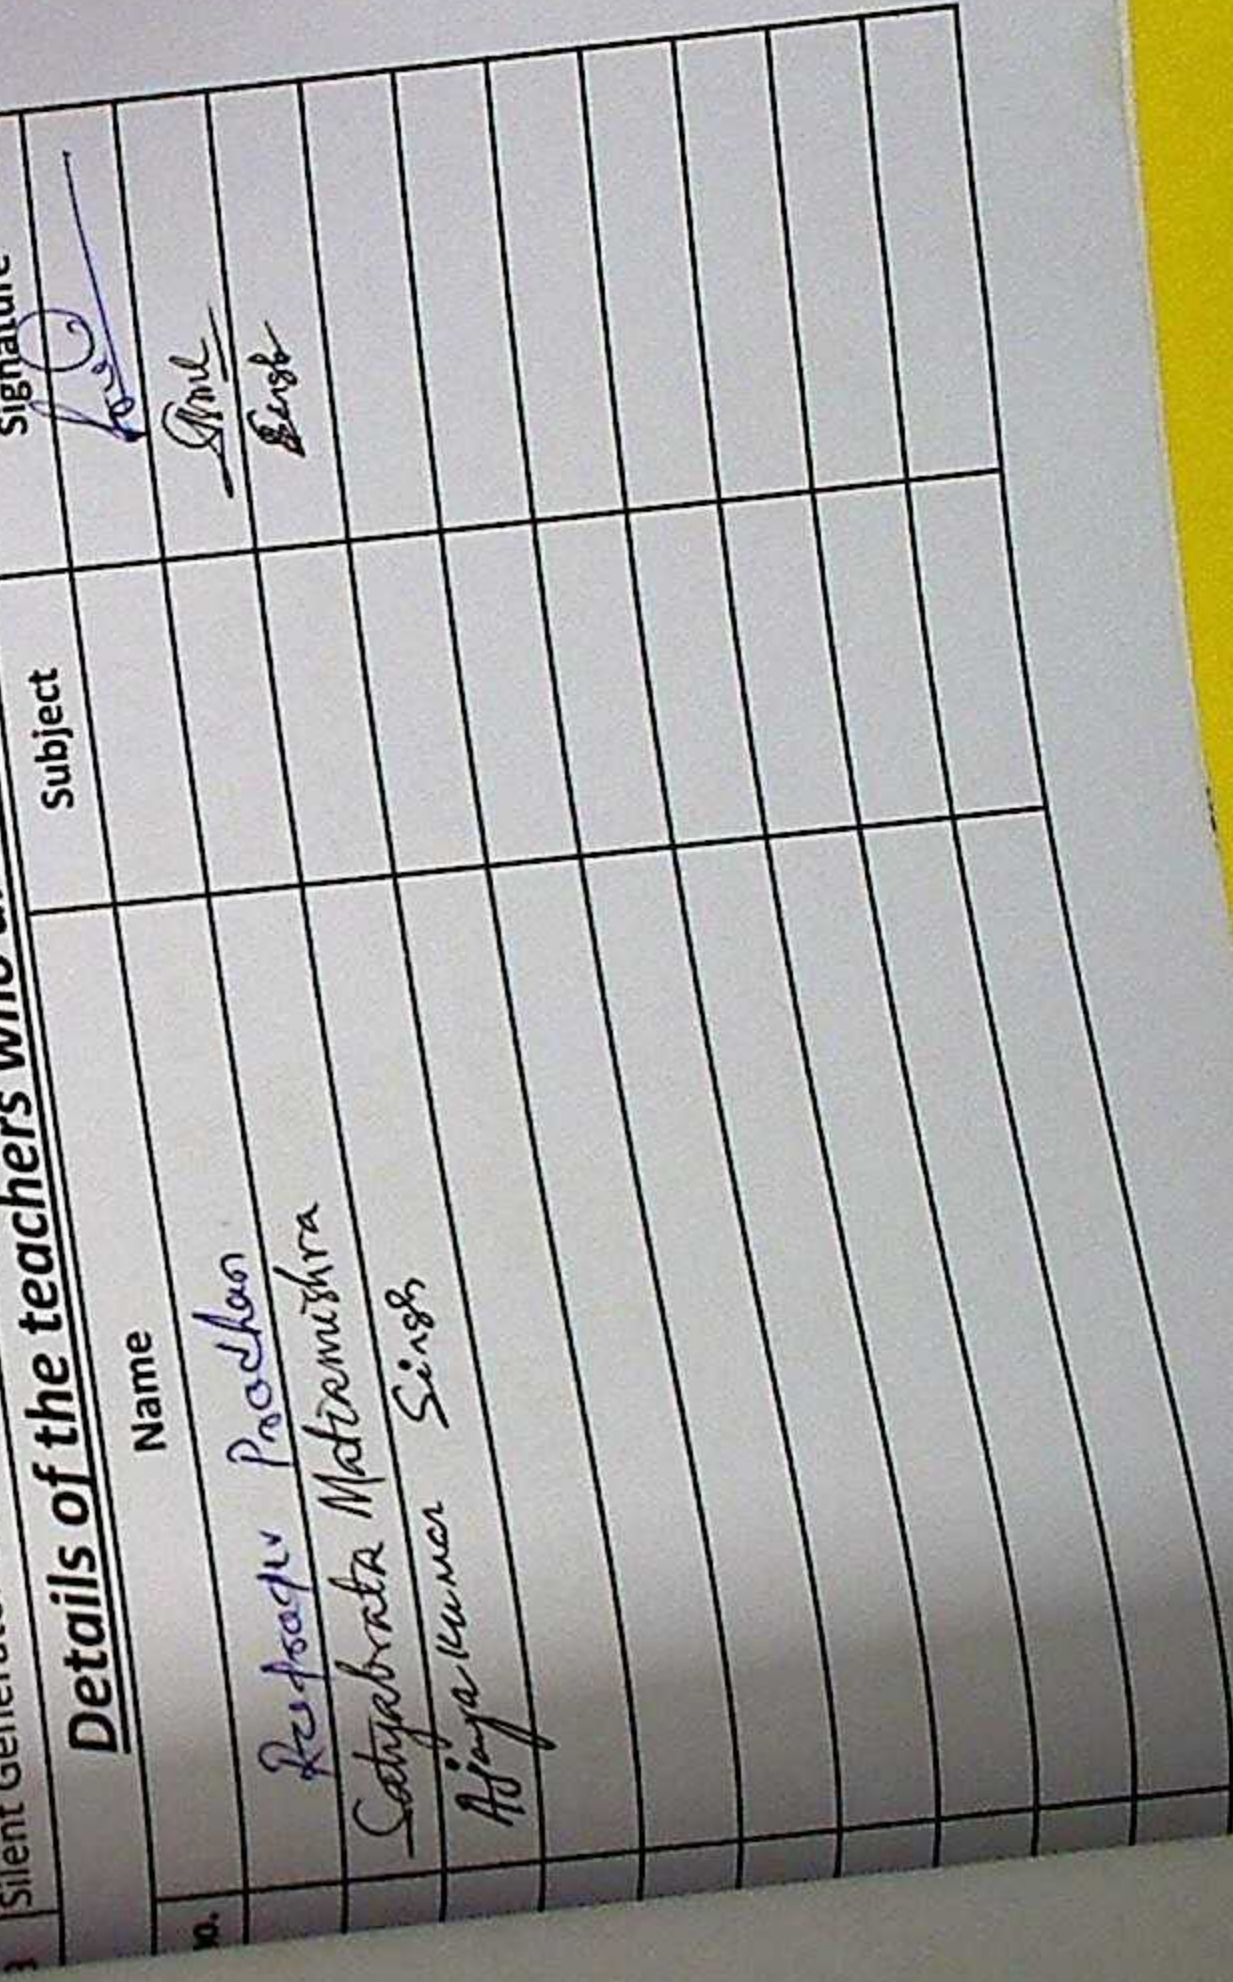 Silent
Details of the teachers who
No. Name Subject Signature
Pradhan
Satyabrata Matiamishra
Ajaya Kumar Singh Singh